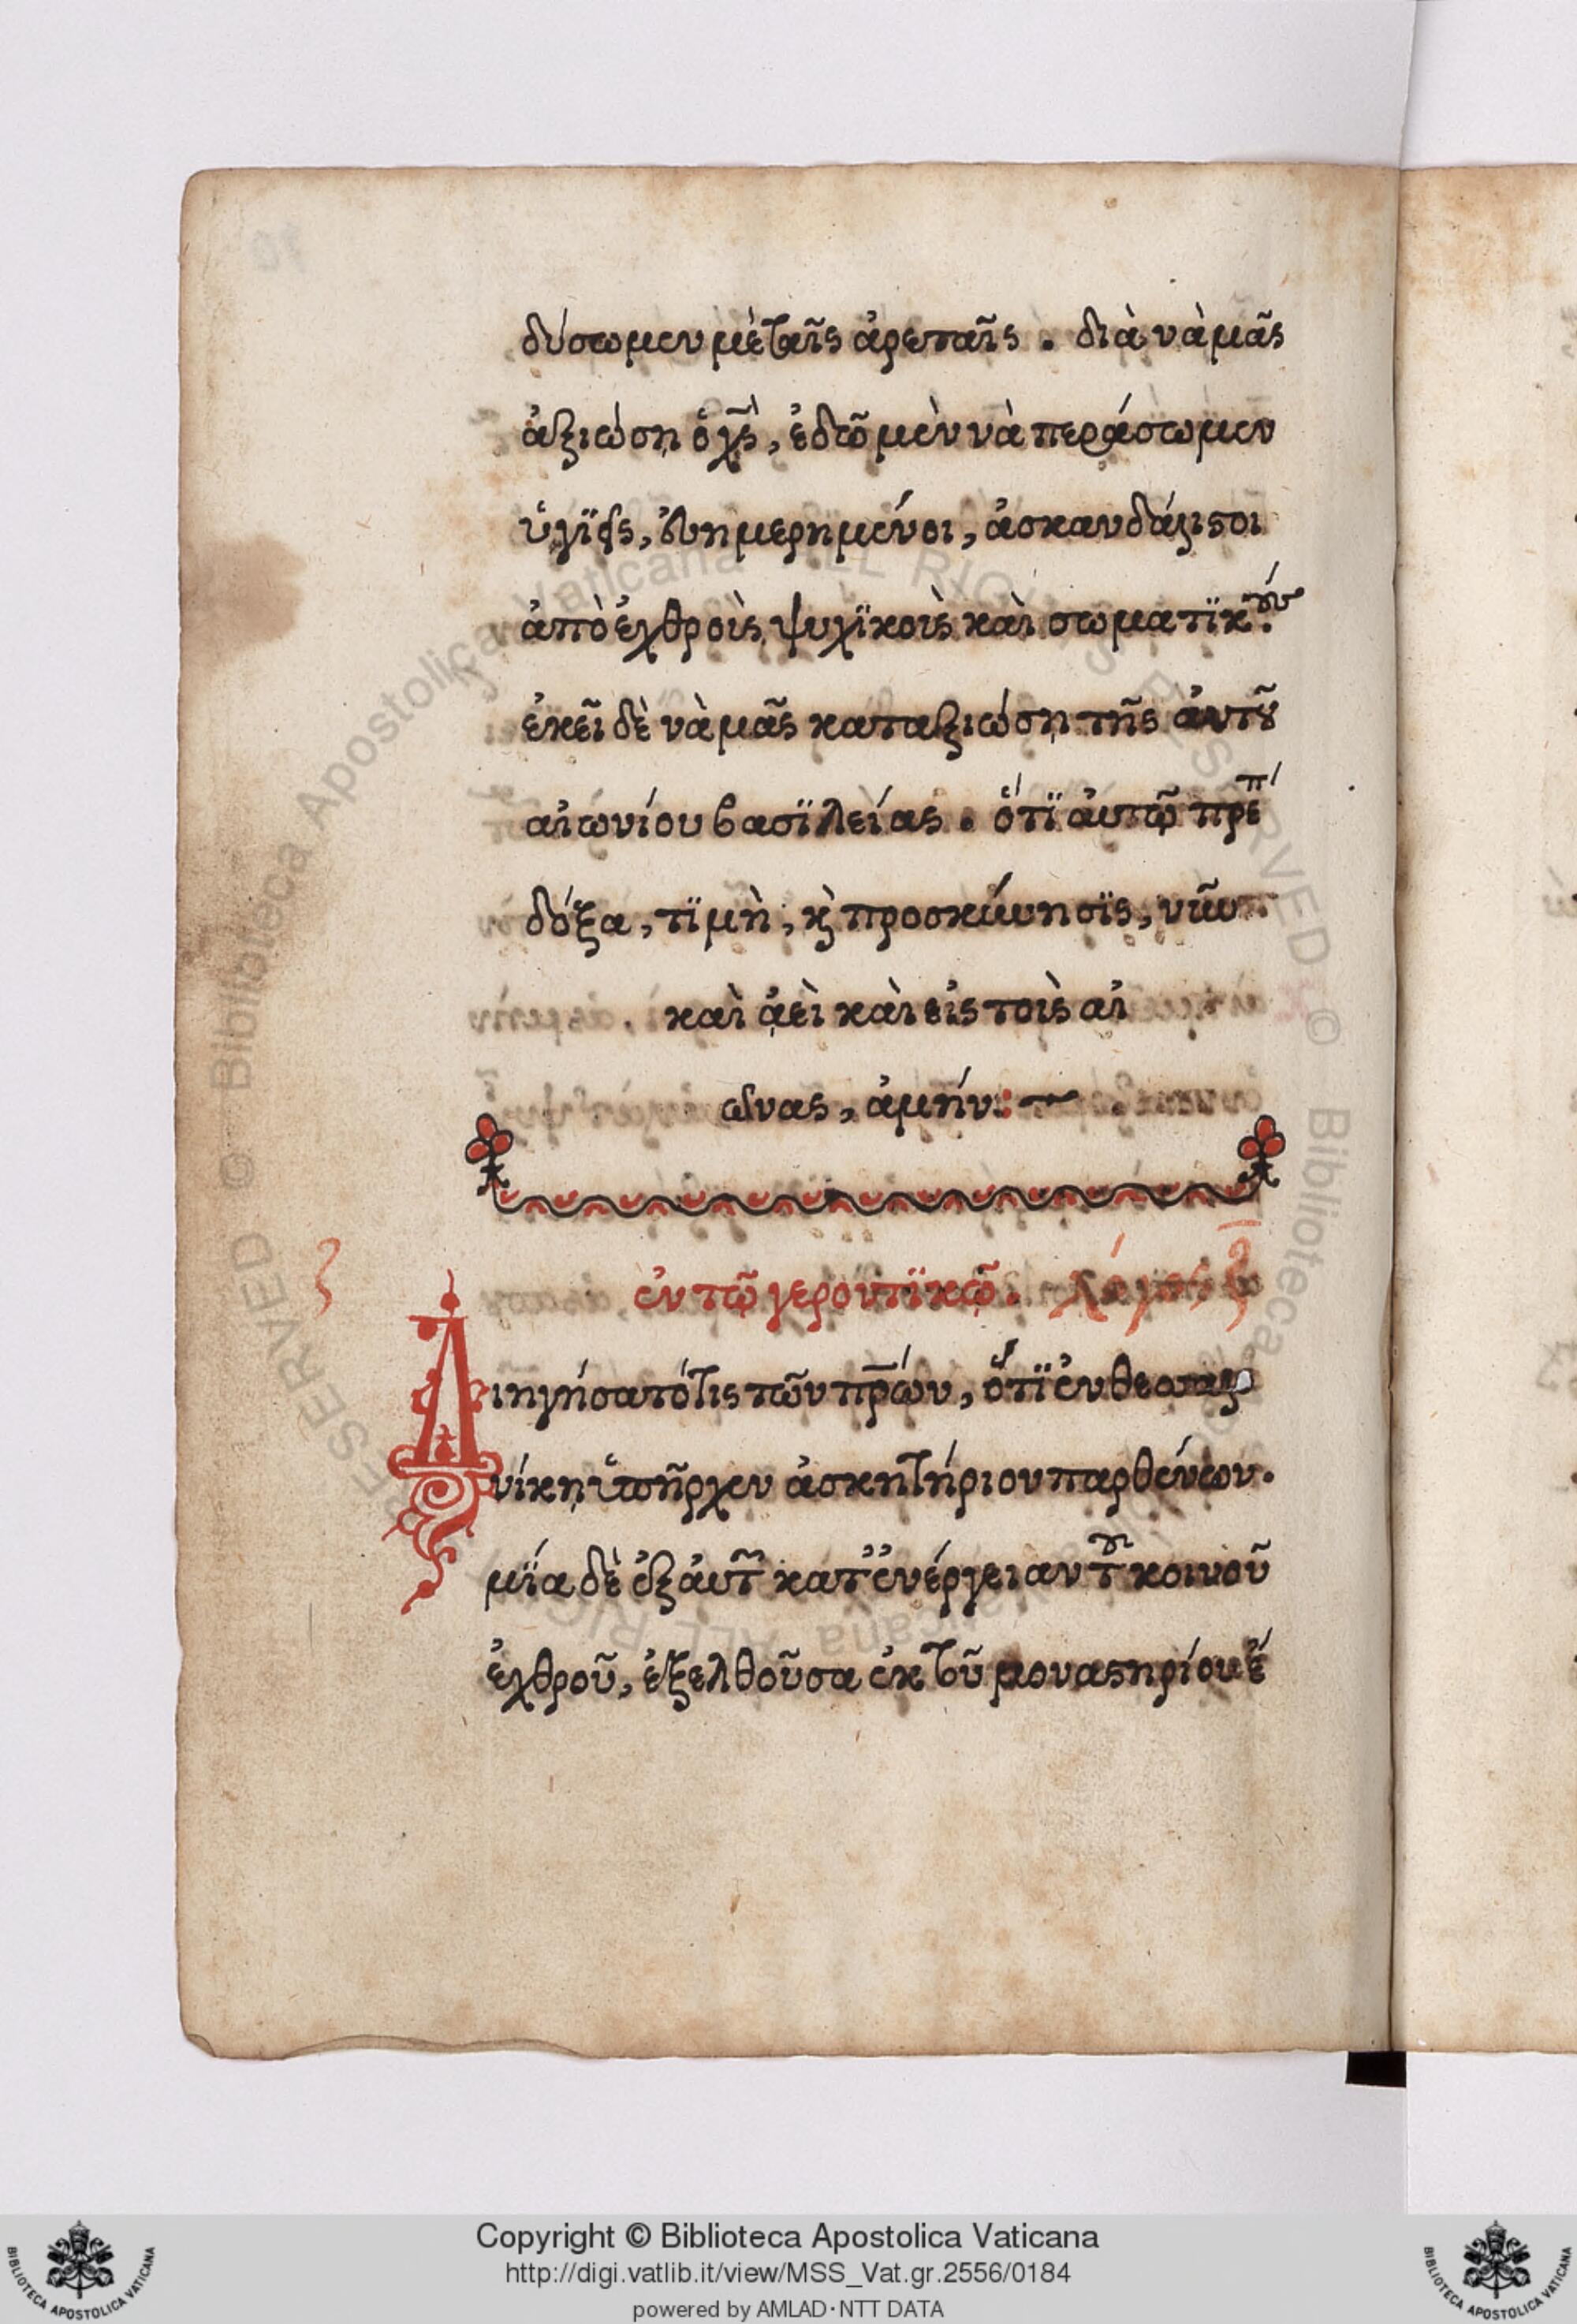 δύσωμεν μὲ ταῖς ἀρεταῖς. διὰ νὰ μᾶς
ἀξιώση ὁ χ̅ς̀, ἐδῶ μὲν νὰ περάσωμεν
ὑγϊεῖς, εὐημερημένοι, ἀσκανδάλιστοι
ἀπὸ ἐχθροὶς ψυχϊκοὶς καὶ σωματϊκούς.
ἐκεῖ δὲ νὰ μᾶς καταξιώση τῆς ἀυτοῦ
αἰωνίου βασϊλείας. ὅτϊ ἀυτῷ πρέπ
δόξα, τϊμὴ, κ̀ προσκύνησϊς, νῦν
καὶ ἀεὶ καὶ εἰς τοὶς αἰ
ῶνας, ἀμήν:
ζ
ἐν τῷ γεροντϊκῷ. λόγος ζ
Διηγήσατό τις τῶν πρ̅ων, ὅτϊ ἐν θεσσαλο
νίκη ὑπῆρχεν ἀσκητήριον παρθένων.
μΐα δὲ ἐξ ἀυτ͂ κατ' ἐνέργειαν τοῦ κοινοῦ
ἐχθροῦ, ἐξελθοῦσα ἐκ τοῦ μοναστηρίου ἔ
Copyright © Biblioteca Apostolica Vaticana
http://digi.vatlib.it/view/MSS_Vat.gr.2556/0184
powered by AMLAD·NTT DATA
BIBLIOTECA APOSTOLICA VATICANA
BIBLIOTECA APOSTOLICA VATICANA